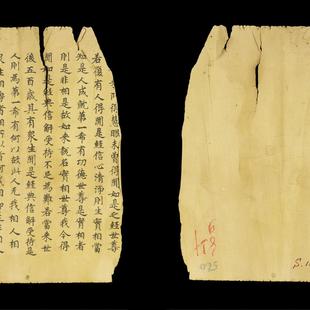 得慧眼未曾得聞如是之經世尊
若復有人得聞是經信心清淨則生實相當
知是人成就第一希有功德世尊是實相者
則是非相是故如來說名實相世尊我今得
聞如是經典信解受持不足為難若當來世
後五百歲其有眾生聞是經典信解受持是
人則為第一希有何以故此人无我相人相
S.1